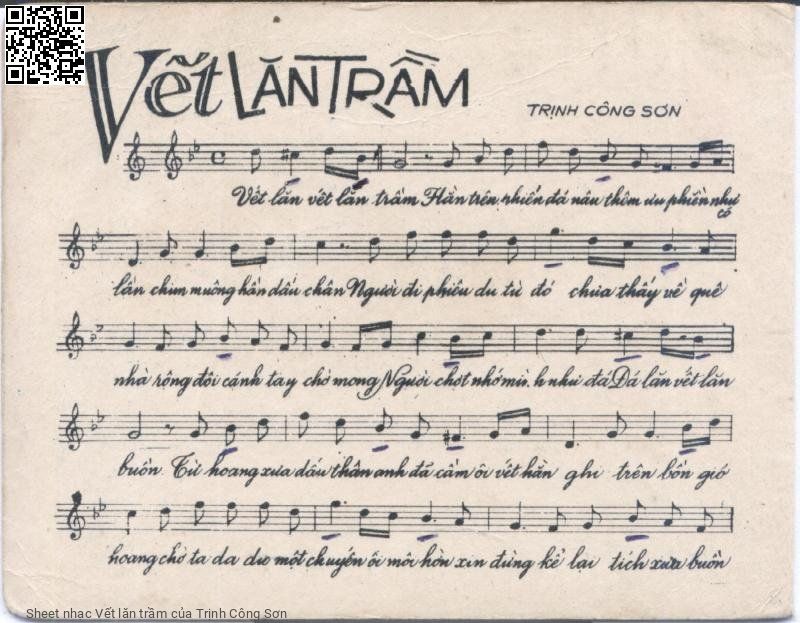 Vết LĂN TRẦM
TRỊNH CÔNG SƠN
Vết lăn vết lăn trầm Hằn trên phiến đá nâu thêm ưu phiền như có
lần chim muông hằn dấu chân Người đi phiêu du từ đó chưa thấy về quê
nhà rộng đôi cánh tay chờ mong Người chợt nhớ mình như đá Đá lăn vết lăn
buồn Từ hoang xưa dấu thân anh đã cấm ôi vết hằn ghi trên bốn gió
hoang chở ta da du một chuyến ôi môi hờn xin đừng kể lại tích xưa buồn
Sheet nhac Vết lăn trầm của Trịnh Công Sơn